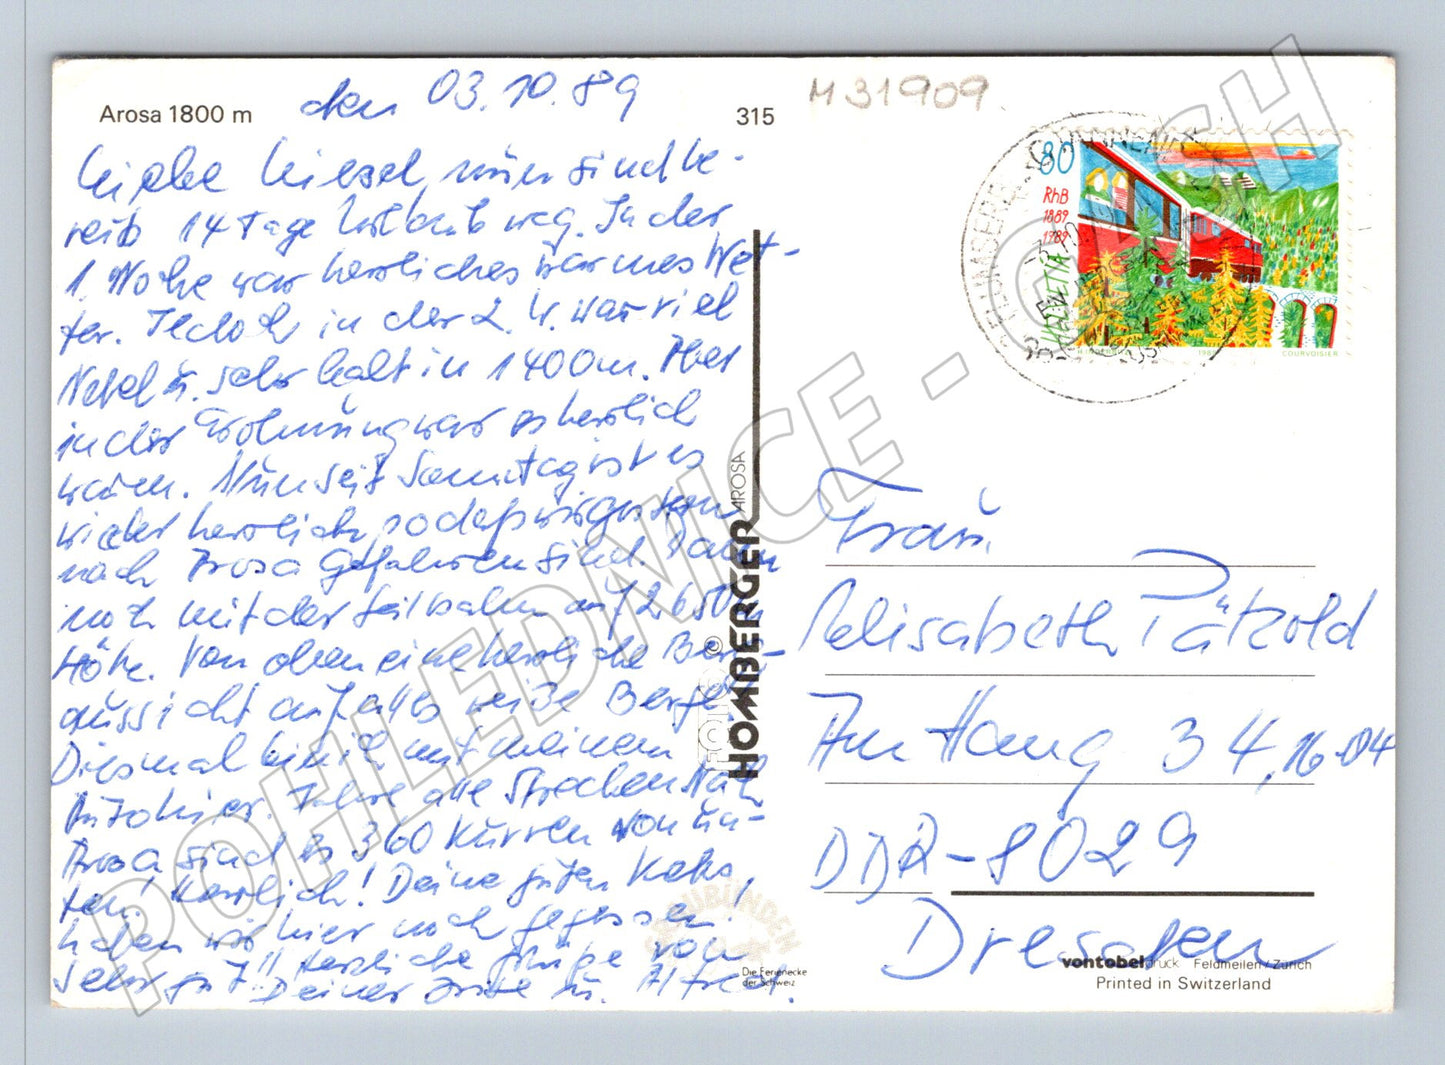 Arosa 1800 m
den 03.10.89
315
M 31909
Liebe Liesel, nun sind be-
reits 14 Tage Urlaub weg. In der
1. Woche war herrliches warmes Wet-
ter. Jedoch in der 2. W. war viel
Nebel u. sehr kalt in 1400m. Aber
in der Wohnung war es herrlich
warm. Nun seit Samstag ist es
wieder herrlich, so daß wir gestern
nach Arosa gefahren sind. Dann
noch mit der Seilbahn auf 2650m
Höhe. Von oben eine herrliche Berg-
aussicht auf alles weiße Berge!
Diesmal bin ich mit meinem
Auto hier. Fahre alle Strecken. Nach
Arosa sind es 360 Kurven von un-
ten! Herrlich! Deine guten Keks,
haben wir hier noch gegessen!
Sehr gut!! Herzliche Grüße von
Deiner u. Alfred.
HOMBERGER AROSA
FOTO ©
GRAUBÜNDEN
Die Ferienecke
der Schweiz
80
RhB
1889
1989
HELVETIA
1989
COURVOISIER
FLUMSERBERG
Frau
Elisabeth Pätzold
Am Hang 34, 16-04
DDR-8029
Dresden
vontobel druck Feldmeilen/Zürich
Printed in Switzerland
POHLEDNICE - CZECH